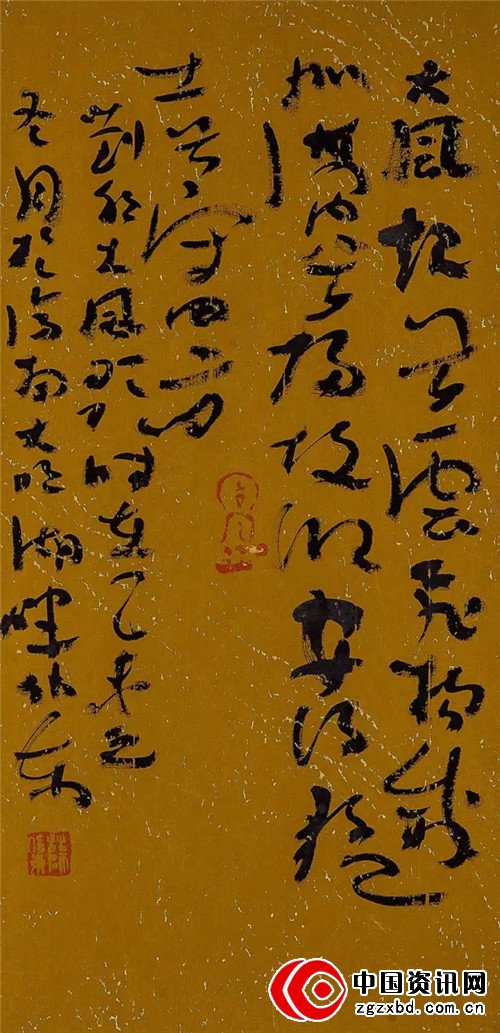 大風起兮雲飛揚威
加海内兮歸故鄉安得猛
士兮守四方
劉邦大風歌時在乙未之
冬月於濟南大明湖畔
中国资讯网
zgzxbd.com.cn